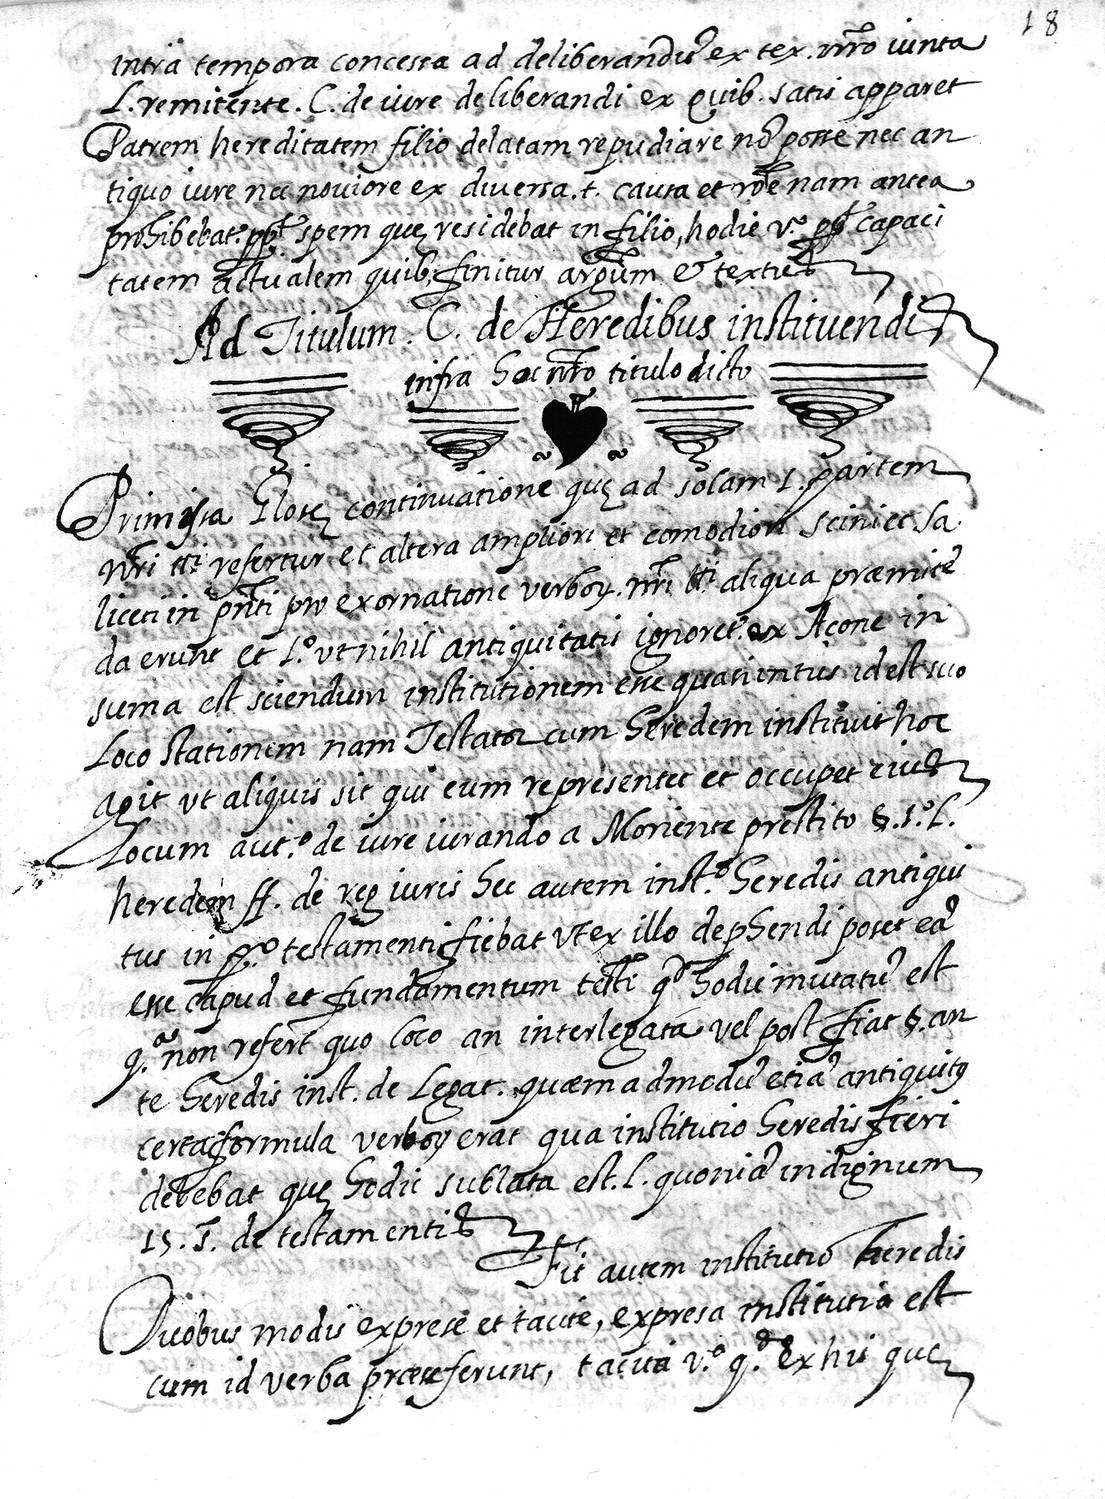 18
intra tempora concessa ad deliberandũ ex tex. nr̃o iuncta
L. remitente. C. de iure deliberandi ex quib. satis apparet
Patrem hereditatem filio delatam repudiare nõ posse nec an
tiquo iure nec noviore ex diversa. t. causa et rõe nam antea
prohibebat. ppt̃ spem quę residebat in filio, hodie v.º ppt̃ capaci
tatem actualem quib, finitur argũm & textus
Ad Titulum. C. de Heredibus instituendis
infra hoc nr̃o titulo dicto
Primissa Glosę continuatione quę ad solam 1. partem
nr̃i tt̃i refertur et altera ampliori et comodiori
liceti in pñti pro exornatione verboꝝ. nr̃i tt̃i aliqua præmitẽ
da erunt et 1.º vt nihil antiquitatis ignoret. ex Açone in
suma est sciendum institutionem esse quasi intus id est suo
Loco stationem nam Testator cum heredem instituit hoc
agit vt aliquis sit qui eum representet et occupet eius
Locum aut.º de iure iurando a Moriente prestito §. 1.º L.
heredem ff. de reg iuris hec autem inst.º heredis antiqui
tus in pº testamenti fiebat vt ex illo dephendi poset eã
esse capud et fundamentum test̃i qđ hodie mutatũ est
q.ª non refert quo loco an inter legata vel post fiat §. an
te heredis inst. de Legat. quæmadmodũ etiã antiquitꝰ
certa formula verboꝝ erat qua institutio heredis fieri
debebat quę hodie sublata est. L. quoniã indignum
15. T. de testamentis
Fit autem institutio heredis
Duobus modis exprese et tacite, expresa institutio est
cum id verba præseferunt, tacita v.º q.do ex his quę